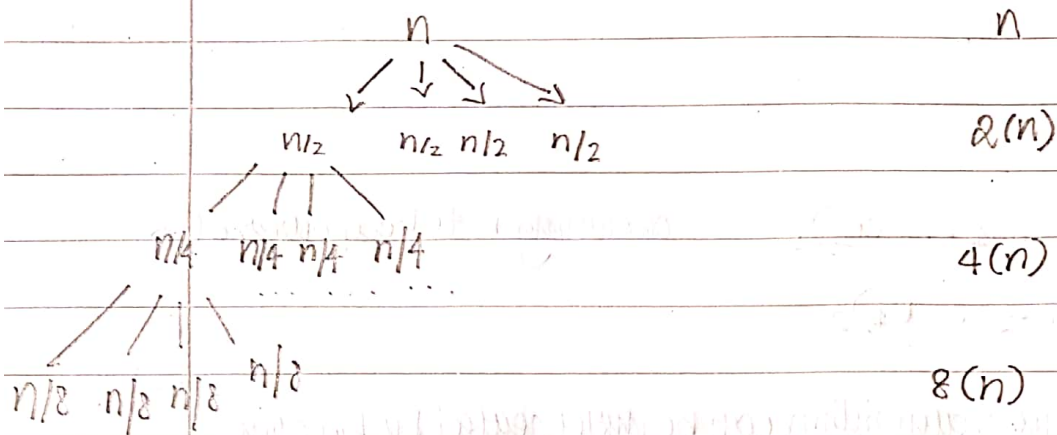 n n
n/2 n/2 n/2 n/2 2(n)
n/4 n/4 n/4 n/4 4(n)
. . . . . . . .
n/8 n/8 n/8 n/8 8(n)